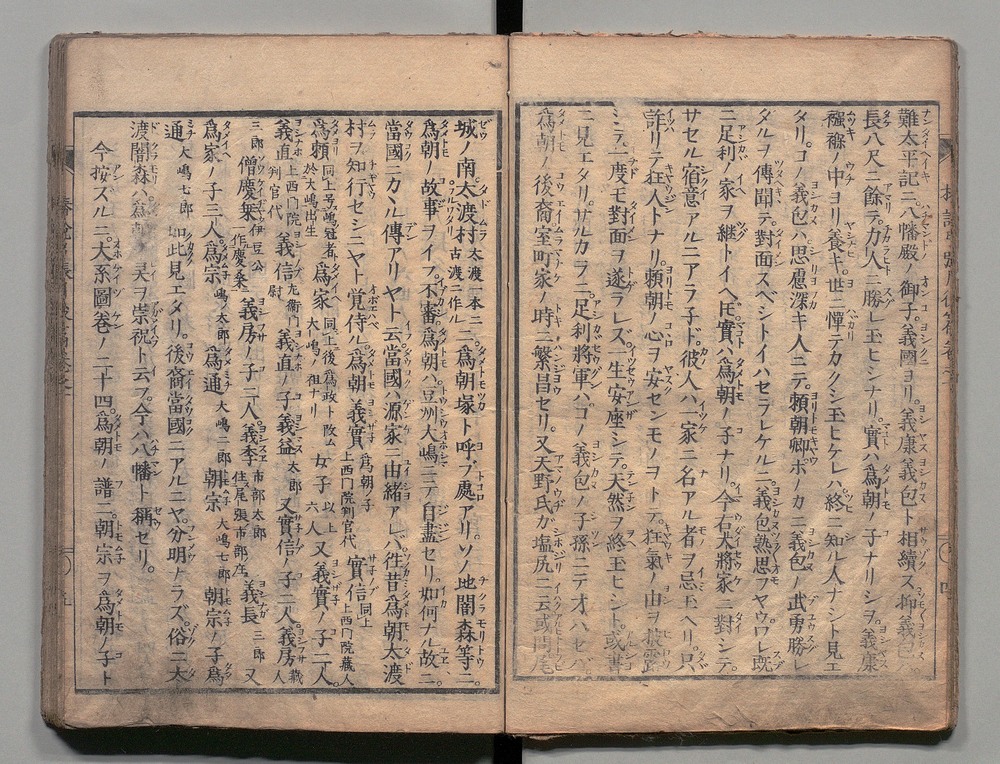 難太平記ニ八幡殿ノ御子義國ヨリ義康義包ト相續ス抑義包
長八尺ニ餘テ力人ニ勝レ玉ヒシナリ實ハ為朝ノ子ナリシヲ義康
襁褓ノ中ヨリ養キ世ニ憚テカクシ玉ヒケレハ終ニ知ル人ナシト見エ
タリコノ義包ハ思慮深キ人ニテ頼朝卿ホノカニ義包ノ武勇勝レ
タルヲ傳聞テ對面スベシトイハセラレケルニ義包熟思フヤウワレ既
ニ足利ノ家ヲ継トイヘ𪜈實ハ為朝ノ子ナリ今右大將家ニ對シテ
サセル宿意アルニアラ子ド彼人ハ一家ニ名アル者ヲ忌玉ヘリ只
詐リテ狂人トナリ頼朝ノ心ヲ安センモノヲトテ狂氣ノ由ヲ披露
ミテ一度モ對面ヲ遂ラレズ一生安座シテ天然ヲ終玉ヒシト或書
ニ見エタリサルカラニ足利將軍ハコノ義包ノ子孫ニテオハセバ
為朝ノ後裔室町家ノ時ニ繁昌セリ又天野氏ガ塩尻ニ云或問尾
城ノ南大渡村大渡一本ニ古渡ニ作ルニ為朝塚ト呼ブ處アリソノ地闇森等ニ
為朝ノ故事ヲイフ不審為朝ハ豆州大嶋ニテ自盡セリ如何ナル故ニ
當國ニカヽル傳アリヤト云當國ハ源家ニ由緒アレバ往昔為朝大渡
村ヲ知行セシニヤト覚侍ル為朝義實為朝ノ子上西門院判官代實信同上上西門院蔵人
為頼同上号嶋冠者於大嶋出生為家同上後為政ト改ム大嶋ノ祖ナリ女子以上六人又義實ノ子二人
義直上西門院判官代義信左衞門尉義直ノ子義益太郎又實信ノ子二人義房蔵人
三郎僧慶乗伊豆公作慶桑義房ノ子二人義季市部太郎住尾張市部庄義長三郎又
為家ノ子三人為宗嶋太郎為通大嶋二郎朝宗大嶋七郎朝宗ノ子為
通大嶋七郎如此見エタリ後裔當國ニアルニヤ分明ナラズ俗ニ大
渡闇森ハ為朝ノ灵ヲ崇祝ト云フ今ハ八幡ト稱セリ
今按スルニ大系圖巻ノ二十四為朝ノ譜ニ朝宗ヲ為朝ノ子ト